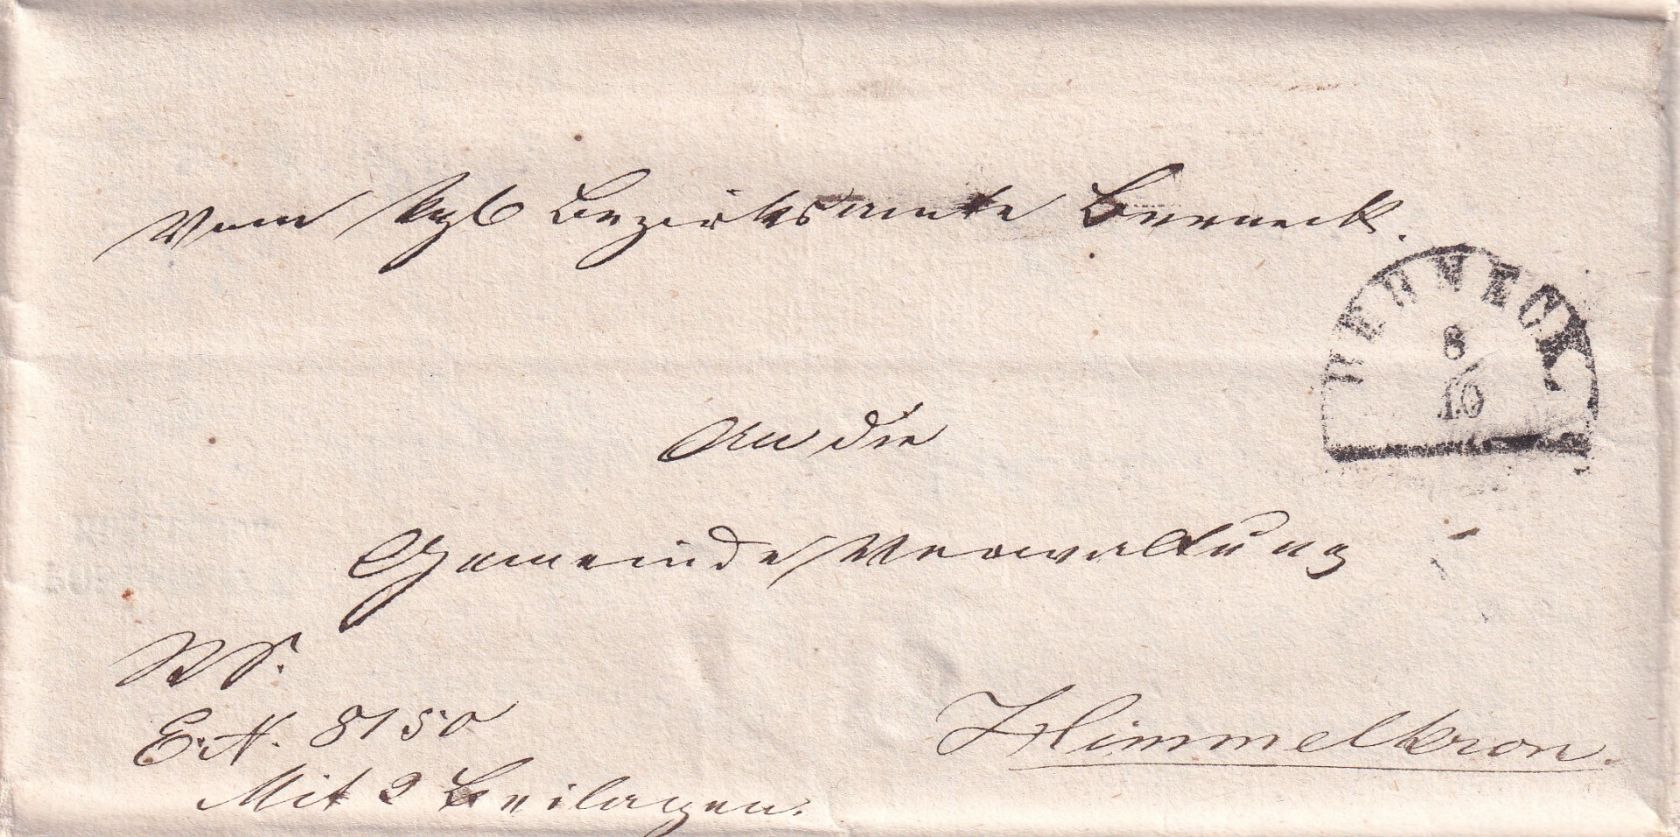 Vom kgl Bezirksamte Berneck.
BERNECK
8/10
An die
Gemeinde Verwaltung
R. S.
E. N. 8150
Mit 2 Beilagen.
Himmelkron.